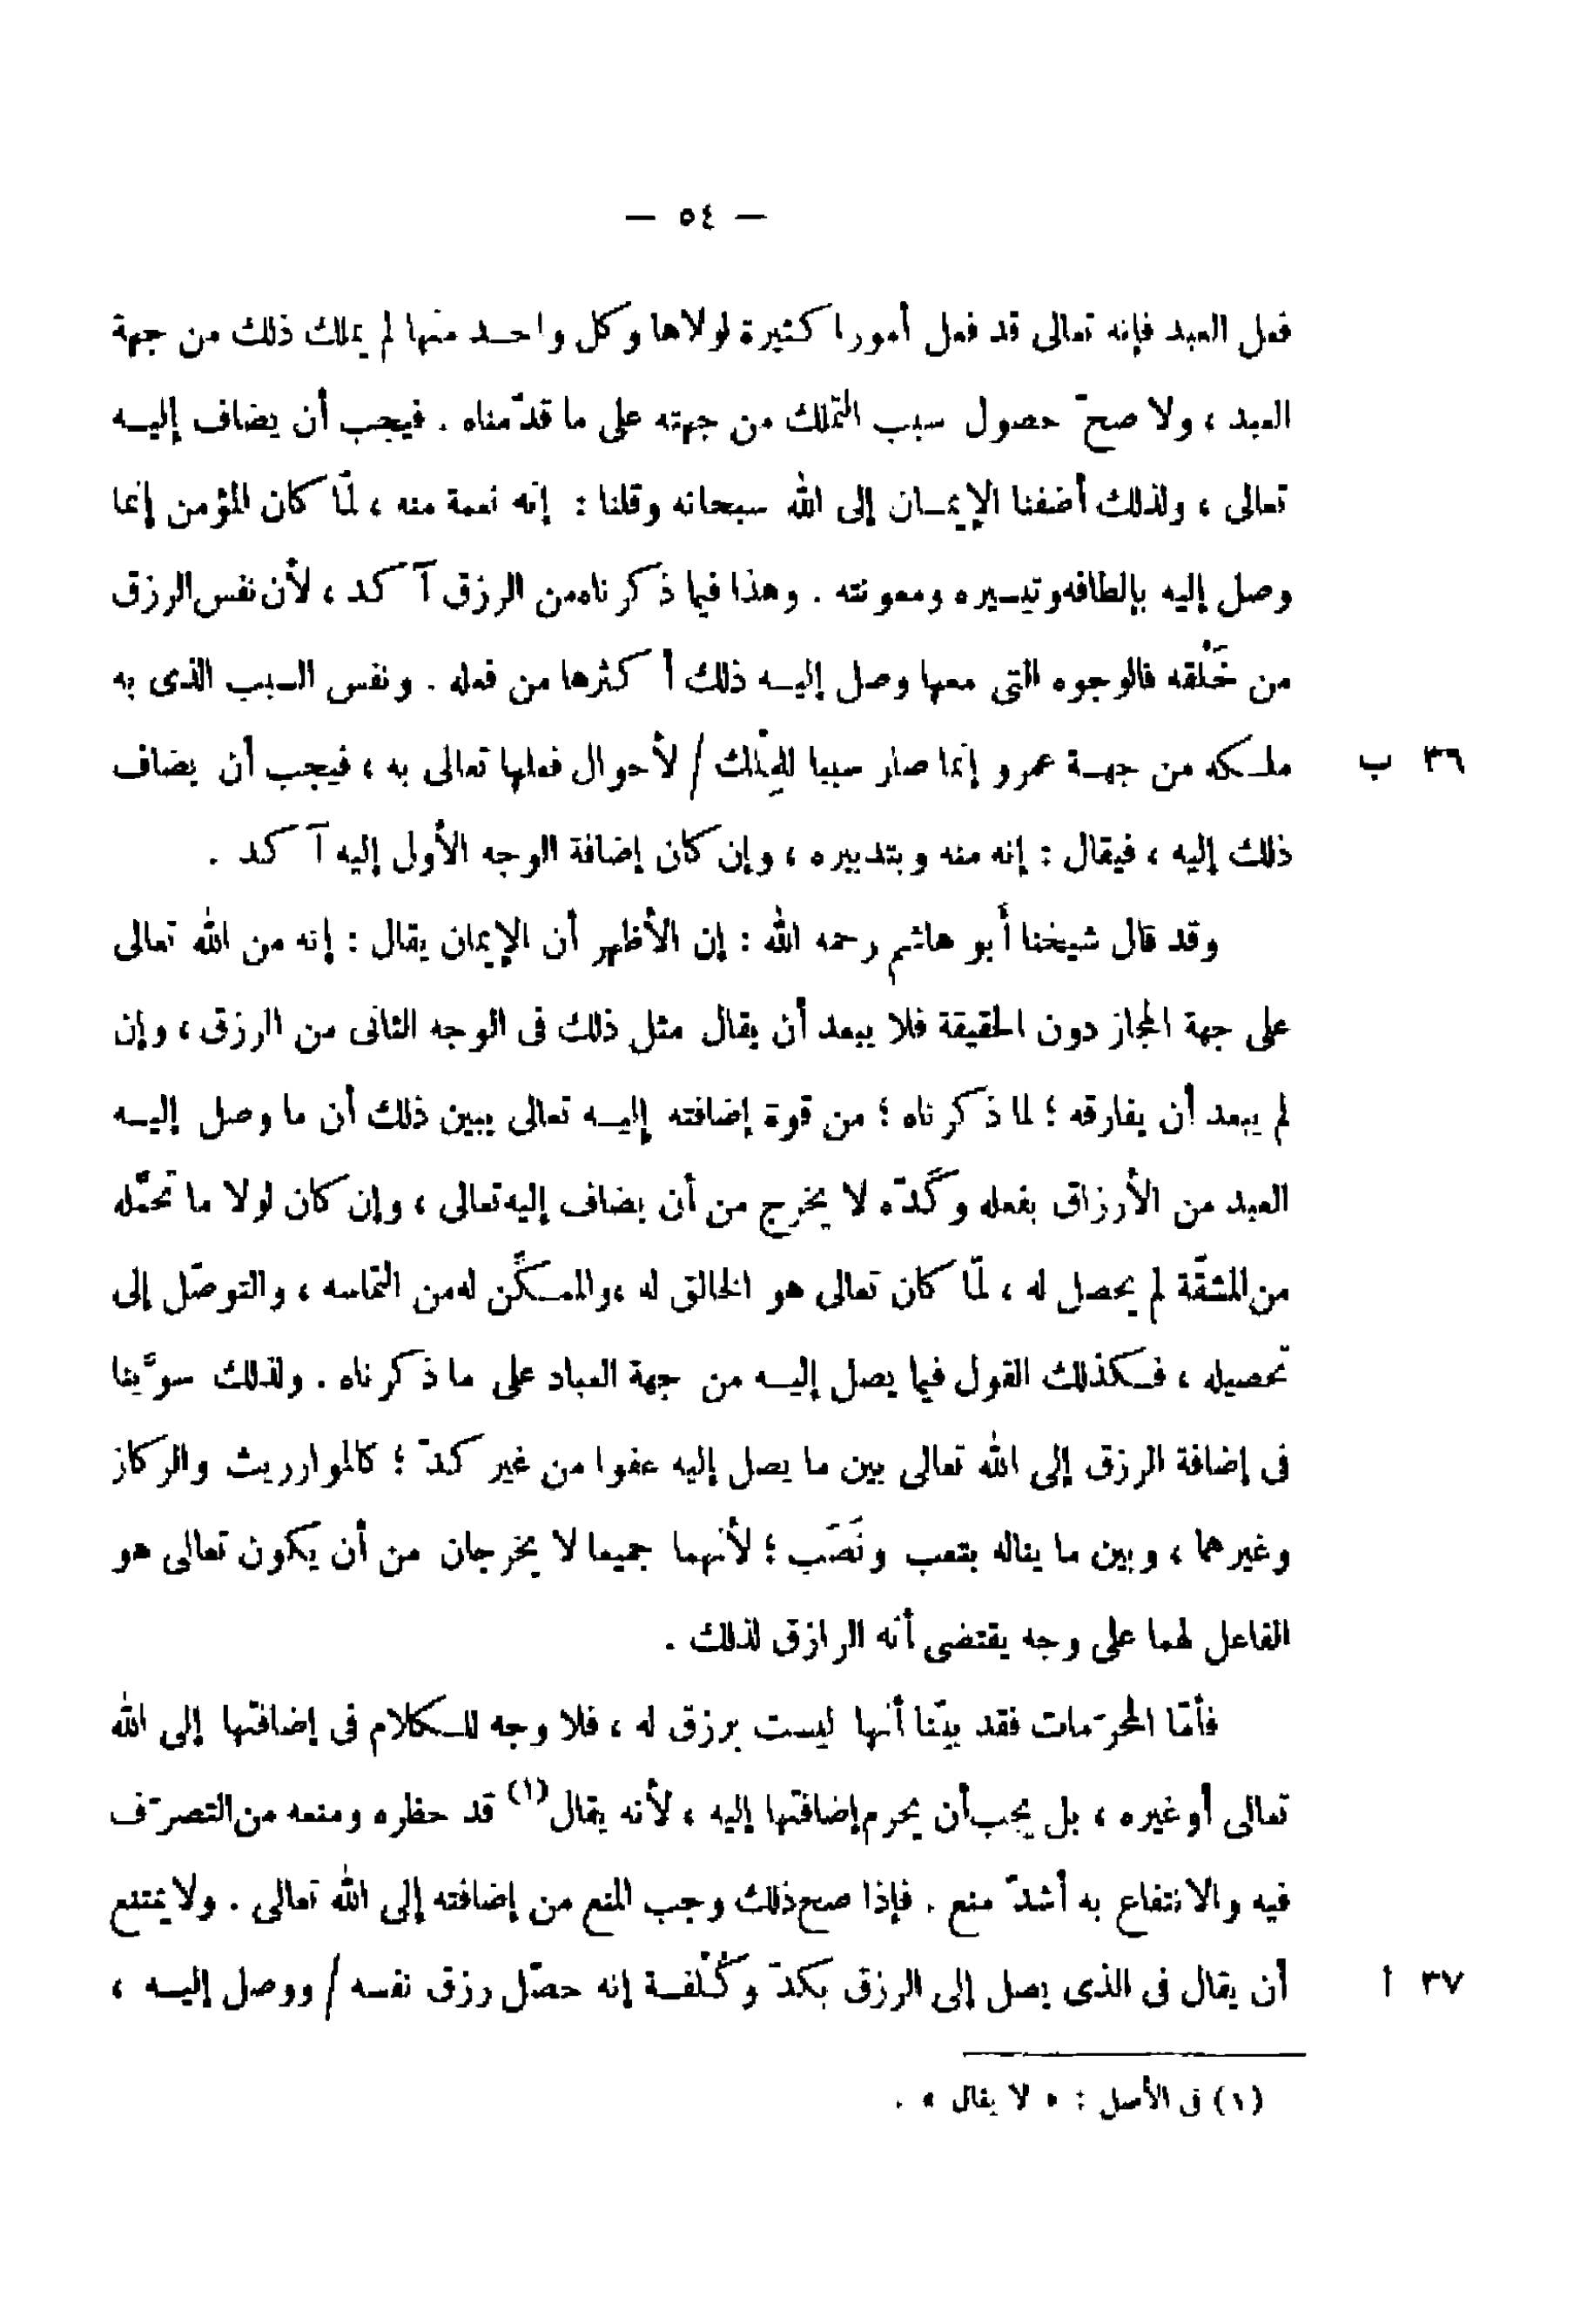 — ٥٤ —
فعل العبد فإنه تعالى قد فعل أمورا كثيرة لولاها وكل واحد منها لم يملك ذلك من جهة
العبد ، ولا صحّ حصول سبب التملك من جهته على ما قدّمناه . فيجب أن يضاف إليه
تعالى ، ولذلك أضفنا الإيمان إلى الله سبحانه وقلنا : إنه نعمة منه ، لمّا كان المؤمن إنما
وصل إليه بإلطافه وتيسيره ومعونته . وهذا فيما ذكرناه من الرزق آكد ، لأن نفس الرزق
من خَلْقه فالوجوه التى معها وصل إليه ذلك أكثرها من فعله . ونفس السبب الذى به
٣٦ ب ملكه من جهة عمرو إنما صار سببا للمِلْك / لأحوال فعلها تعالى به ، فيجب أن يضاف
ذلك إليه ، فيقال : إنه منه وبتدبيره ، وإن كان إضافة الوجه الأول إليه آكد .
وقد قال شيخنا أبو هاشم رحمه الله : إن الأظهر أن الإيمان يقال : إنه من الله تعالى
على جهة المجاز دون الحقيقة فلا يبعد أن يقال مثل ذلك فى الوجه الثانى من الرزق ، وإن
لم يبعد أن يفارقه ؛ لما ذكرناه ؛ من قوة إضافته إليه تعالى يبين ذلك أن ما وصل إليه
العبد من الأرزاق بفعله وكَدّه لا يخرج من أن يضاف إليه تعالى ، وإن كان لولا ما تحمَّله
من المشقّة لم يحصل له ، لمّا كان تعالى هو الخالق له ، والممكِّن له من التماسه ، والتوصّل إلى
تحصيله ، فكذلك القول فيما يصل إليه من جهة العباد على ما ذكرناه . ولذلك سوَّينا
فى إضافة الرزق إلى الله تعالى بين ما يصل إليه عفوا من غير كدّ ؛ كالمواريث والركاز
وغيرهما ، وبين ما يناله بتعب ونَصَب ؛ لأنهما جميعا لا يخرجان من أن يكون تعالى هو
الفاعل لهما على وجه يقتضى أنه الرازق لذلك .
فأمّا المحرّمات فقد بيّنا أنها ليست برزق له ، فلا وجه للكلام فى إضافتها إلى الله
تعالى أو غيره ، بل يجب أن يحرم إضافتها إليه ، لأنه يقال (١) قد حظره ومنعه من التصرّف
فيه والانتفاع به أشدّ منع . فإذا صح ذلك وجب المنع من إضافته إلى الله تعالى . ولا يمتنع
٣٧ أ أن يقال فى الذى يصل إلى الرزق بكدّ وكُلْفة إنه حصّل رزق نفسه / ووصل إليه ،
(١) فى الأصل : « لا يقال » .